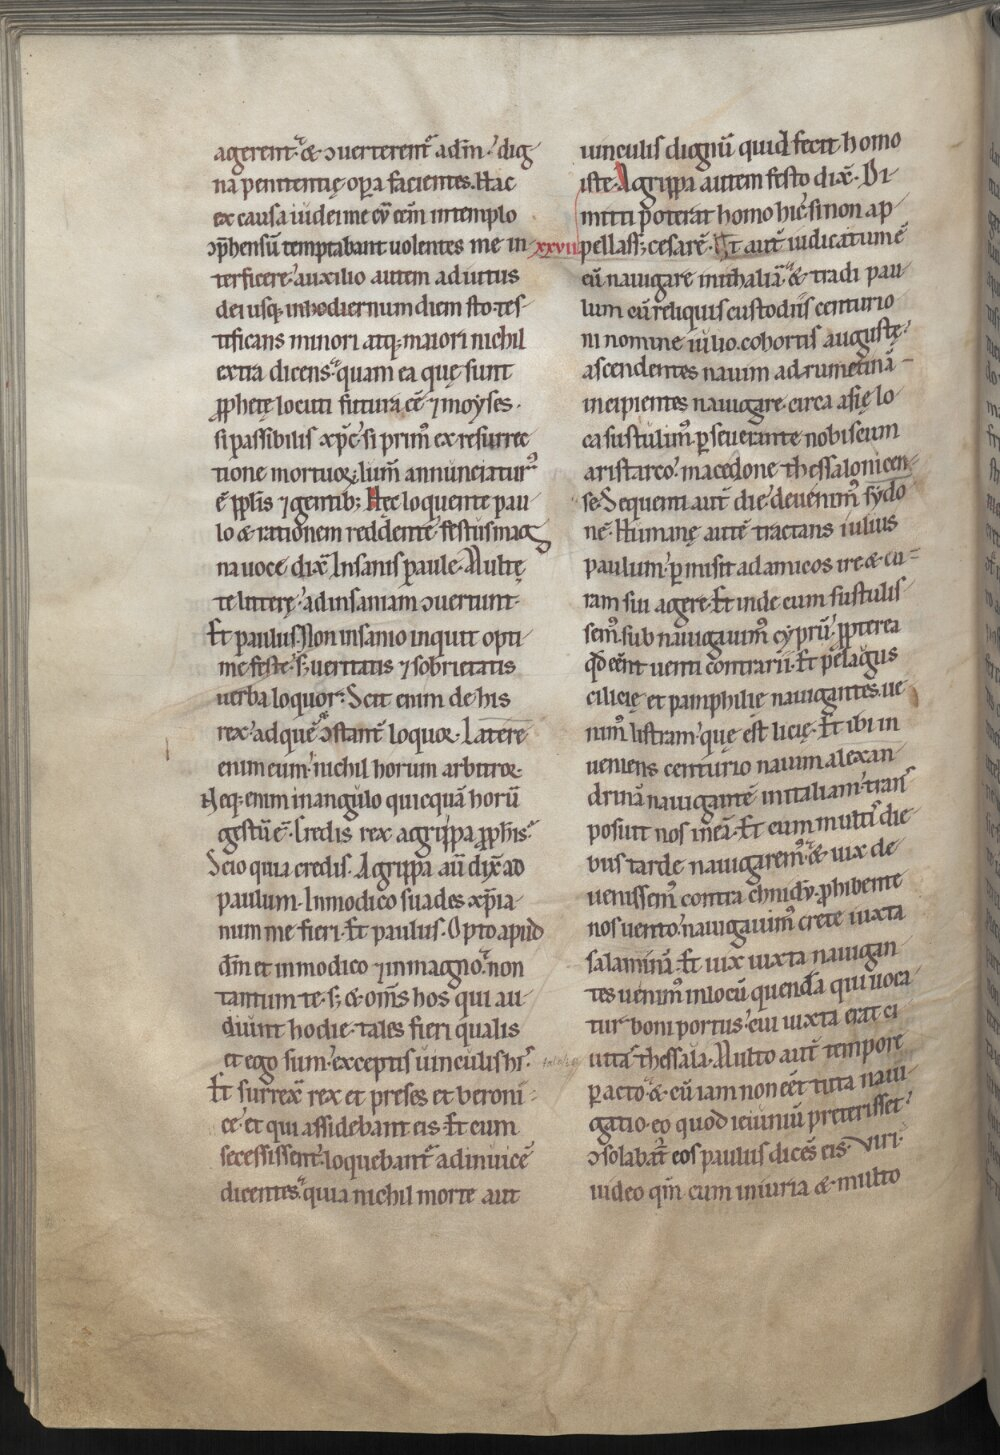 agerent᷑. & ꝯuerterent᷑ ad dm̄. dig
na penitentię oꝑa facientes. Hac
ex causa iudei me cū eēm in templo
ꝯp̄hensū temptabant uolentes me in
terficere. auxilio autem adiutus
dei usq; in hodiernum diem sto. tes
tificans minori atq; maiori nichil
extra dicens. quam ea quę sunt
ꝓphetę locuti futura eē ⁊ moyses.
si passibilis xp̄c. si primꝰ ex resurrec
tione mortuoꝝ. lum̄ annunciaturꝰ
ē pplis ⁊ gentib; Hęc loquente pau
lo & rationem reddente. festus mag
na uoce dix̄. Insanis paule. Multę
te litterę. ad insaniam ꝯuertunt.
Et paulus. Non insanio inquit opti
me feste. s; ueritatis ⁊ sobrietatis
uerba loquor. Scit enim de his
rex. ad quē ꝯstant̄ loquor. Latere
enim eum. nichil horum arbitror.
Neq; enim in angulo quicquā horū
gestū ē. Credis rex agrippa ꝓphis.
Scio quia credis. Agrippa aū dix̄ ad
paulum. In modico suades xp̄ia
num me fieri. Et paulus. Opto apud
dm̄ et in modico ⁊ in magno. non
tantum te. s; & om̄s hos qui au
diunt hodie. tales fieri qualis
et ego sum. exceptis uinculis his.
Et surrex̄ rex et preses et beroni
ce. et qui assidebant eis. Et cum
secessissent. loquebant᷑ adinuicē
dicentes. quia nichil morte aut
uinculis dignū quid fecit homo
iste. Agrippa autem festo dix̄. Di
mitti poterat homo hic. si non ap
xxvii pellass; cesarē. Ut aut̄ iudicatum ē
eū nauigare in ithaliā. & tradi pau
lum cū reliquis custodiis centurio
ni nomine iulio. cohortis augustę.
ascendentes nauim adrumetinā
incipientes nauigare circa asię lo
ca sustulimꝰ. ꝑseuerante nobiscum
aristarco. macedone thessalonicen
se. Sequenti aut̄ die. deuenimꝰ sydo
nē. Humanę autē tractans iulius
paulum. ꝑmisit ad amicos ire & cu
ram sui agere. Et inde cum sustulis
semꝰ. sub nauigauimꝰ cyprū. ꝓpterea
qd̄ eēnt uenti contrarii. Et pelagus
cilicię et pamphilię nauigantes. ue
nimꝰ listram. quę est licię. Et ibi in
ueniens centurio nauim alexan
drinā nauigantē in italiam. trans
posuit nos in eā. Et cum multis die
bus tarde nauigaremꝰ. & uix de
uenissemꝰ contra chnidū. ꝓhibente
nos uento. nauigauimꝰ crete iuxta
salaminā. Et uix iuxta nauigan
tes uenimꝰ in locū quendā qui uoca
tur boni portus. cui iuxta erat ci
uitas thessala. Multo aut̄ tempore
ꝑacto. & cū iam non eēt tuta naui
gatio. eo quod ieiuniū preterisset.
ꝯsolabat᷑ eos paulus dicēs eis. Viri.
uideo qm̄ cum iniuria & multo